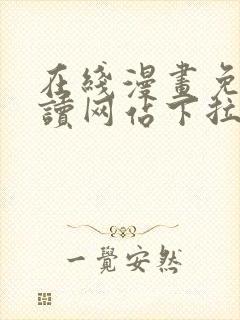 在綫漫畫免
讀网佔下拉
一覺安然